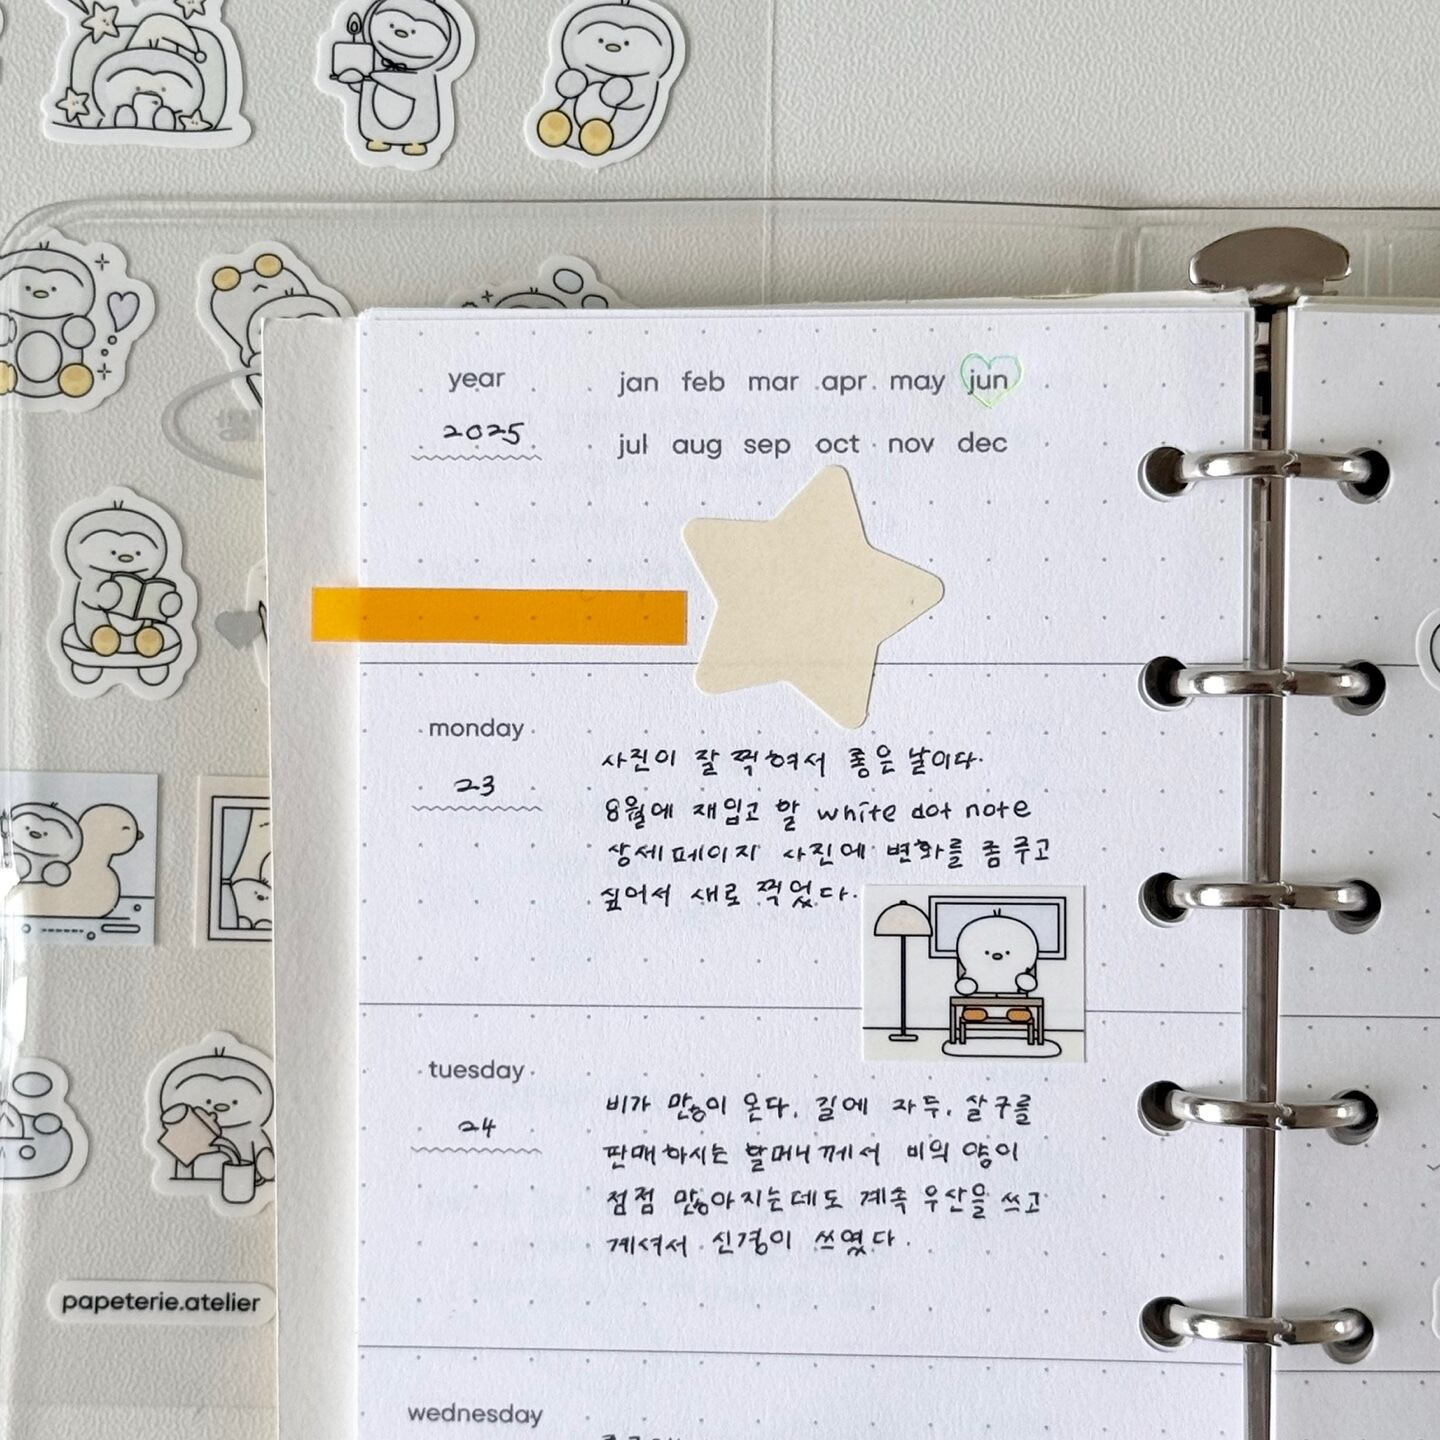 year
jan feb mar apr may jun
2025
jul aug sep oct nov dec
monday
23
사진이 잘 찍혀서 좋은 날이다.
8월에 재입고 할 white dot note
상세페이지 사진에 변화를 좀 주고
싶어서 새로 찍었다.
tuesday
24
비가 많이 온다. 길에 자두, 살구를
판매하시는 할머니께서 비의 양이
점점 많아지는데도 계속 우산을 쓰고
계셔서 신경이 쓰였다.
papeterie.atelier
wednesday